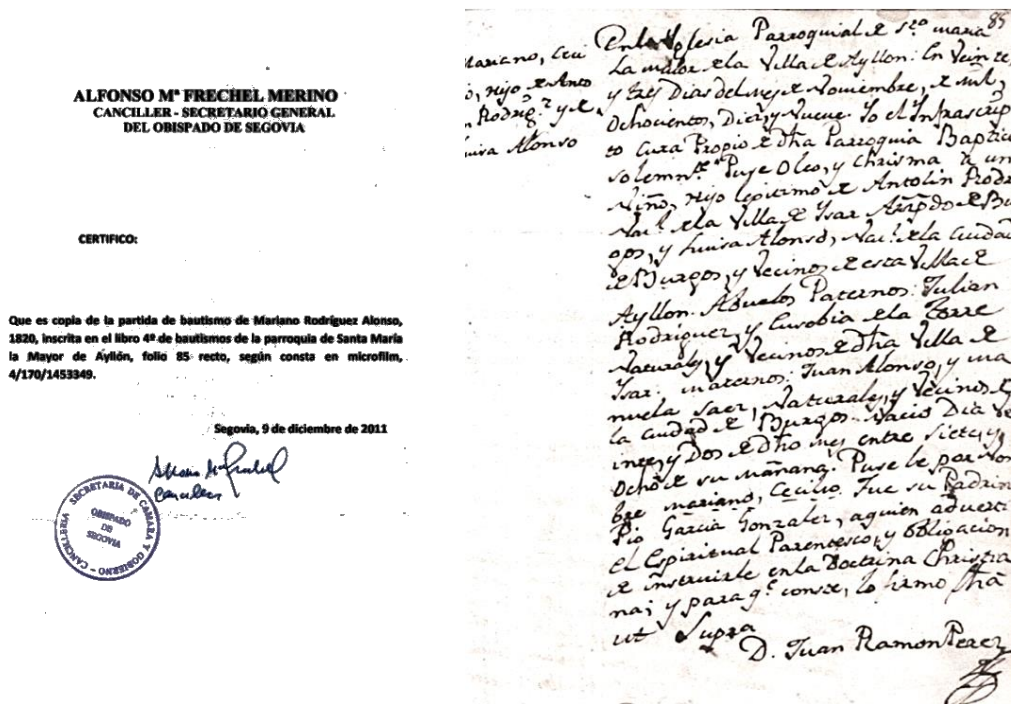 ALFONSO Mª FRECHEL MERINO
CANCILLER - SECRETARIO GENERAL
DEL OBISPADO DE SEGOVIA
CERTIFICO:
Que es copia de la partida de bautismo de Mariano Rodríguez Alonso,
1820, inscrita en el libro 4º de bautismos de la parroquia de Santa María
la Mayor de Ayllón, folio 85 recto, según consta en microfilm,
4/170/1453349.
Segovia, 9 de diciembre de 2011
Canciller
SECRETARIA DE CAMARA Y GOBIERNO - CANCILLERIA
OBISPADO
DE
SEGOVIA
85
Mariano, Ceci
o, hijo de Anto
n Rodrigz y de
Luisa Alonso
En la Yglesia Parroquial de Sta maria
La maior de la Villa de Ayllon: En Veinte,
y trey Dias del mes de Noviembre, de Mil,
Ochocientos, Diez, y Nueve. Yo el Infrascrip
to Cura Propio de dha Parroquia Baptice
solemnte Puse Oleo, y Chrisma a un
Niño, hijo legitimo de Antolin Rodri
Nal de la Villa de Ysar Arzpdo de Bu
rgos, y Luisa Alonso, Nal de la Ciudad
de Burgos, y Vecinos de esta Villa de
Ayllon. Abuelos Paternos: Julian
Rodriguez, y Eusobia de la Torre
Naturales, y Vecinos de dha Villa de
Ysar: maternos: Juan Alonso, y ma
nuela Saez, Naturales, y Vecinos de
la Ciudad de Burgos. Nacio Dia Ve
inte, y Dos de dho mes, entre siete, y
Ocho de su mañana. Puse le por nom
bre mariano, Cecilio. Fue su Padrin
Pio Garcia Gonzalez, aquien adverti
el Espiritual Parentesco, y obligacion
de instruirle en la Doctrina Christia
na; y para qe conste, lo firmo fha
ut Supra
D. Juan Ramon Perez